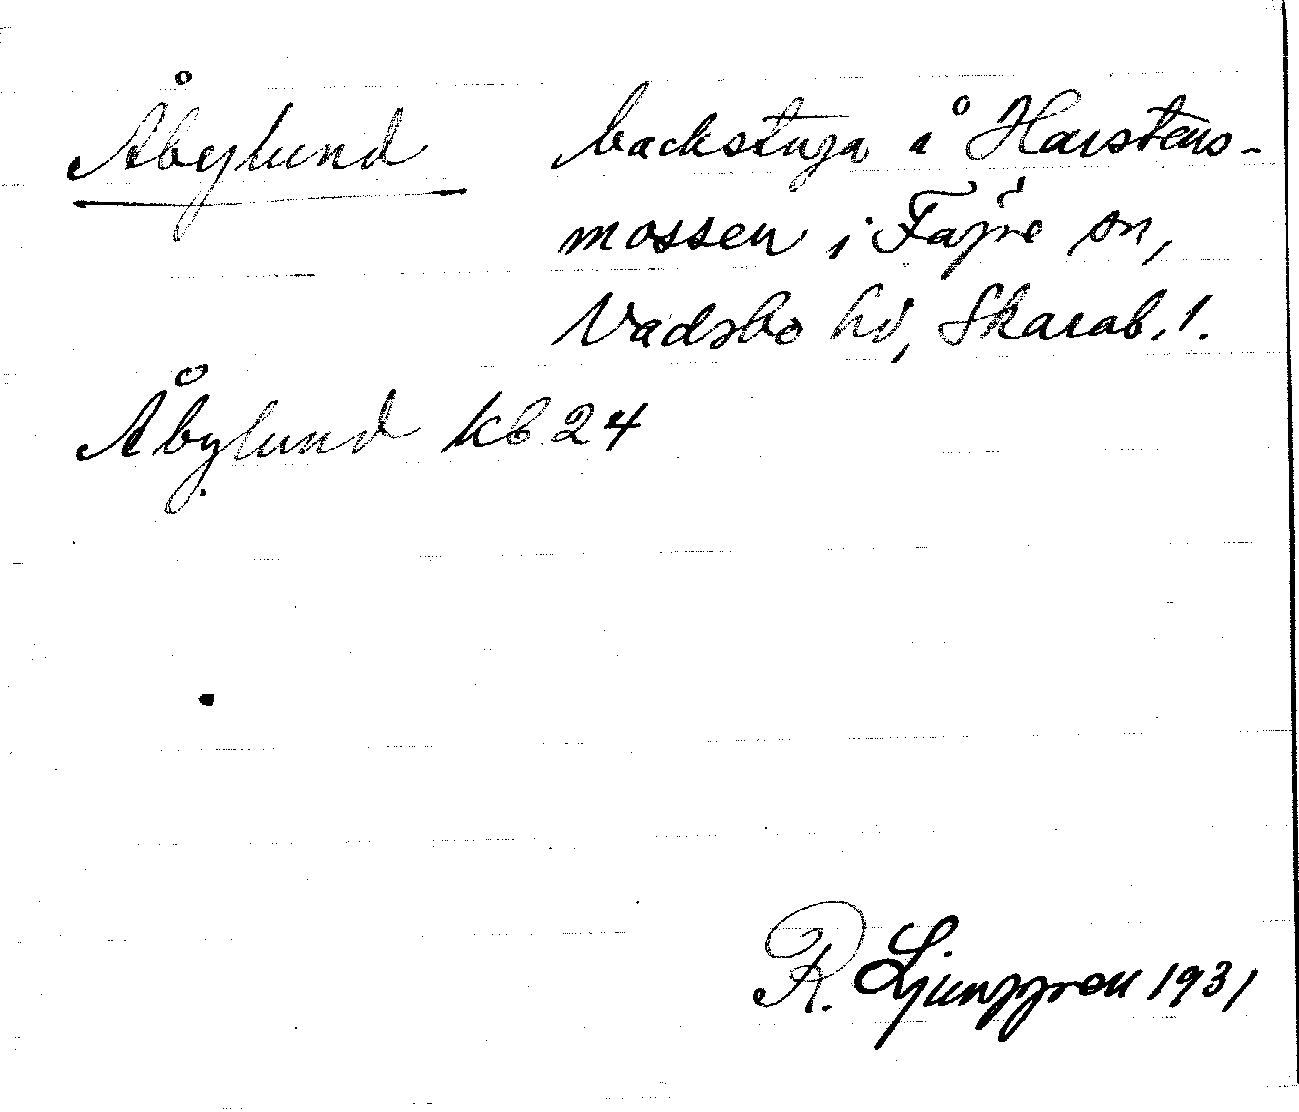 Åbylund backstuga å Harstens-
mossen i Fägre sn,
Vadsbo hd, Skarab. l.
Åbylund kb 24
R. Ljunggren 1931